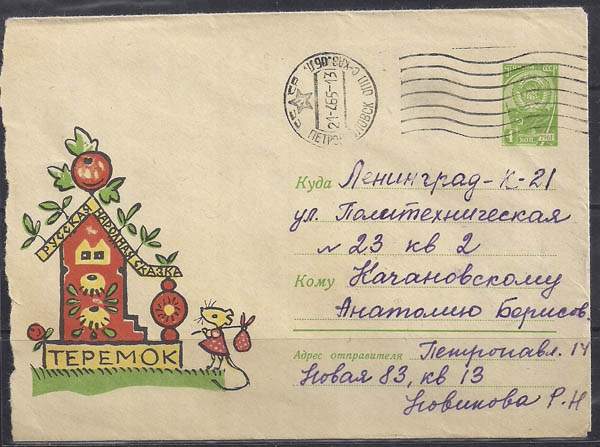 21-4 65-13
ПЕТРО
4 КОП 1961
РУССКАЯ НАРОДНАЯ СКАЗКА
ТЕРЕМОК
Куда Ленинград-К-21
ул. Политехническая
№ 23 кв 2
Кому Качановскому
Анатолию Борисов.
Адрес отправителя Петропавл. 14
Новая 83, кв 13
Новикова Р. Н